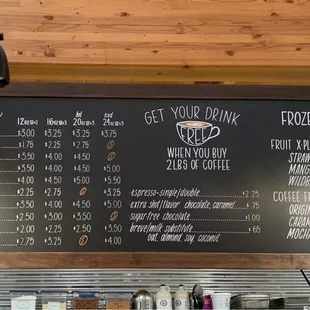 hot iced
12oz 16oz 20oz 24oz
$3.00 $3.25 $3.25 $3.75
$3.50 $4.00 $4.50
$3.50 $4.00 $4.50 $5.00
$3.50 $4.00 $4.50 $5.00
$4.00 $4.50 $5.00 $5.50
$2.25 $2.75
$2.50 $3.00 $3.50
$2.50 $3.00 $3.50 $4.00
$2.75 $3.25
GET YOUR DRINK
FREE
WHEN YOU BUY
2LBS OF COFFEE
espresso-single/double $2.25
extra shot/flavor chocolate, caramel $.75
sugar-free chocolate $1.00
breve/milk substitute $.65
oat, almond, soy, coconut
FROZE
FRUIT X-PL
STRAW
MANG
WILDB
COFFEE FR
ORIGI
CARAM
MOCHA